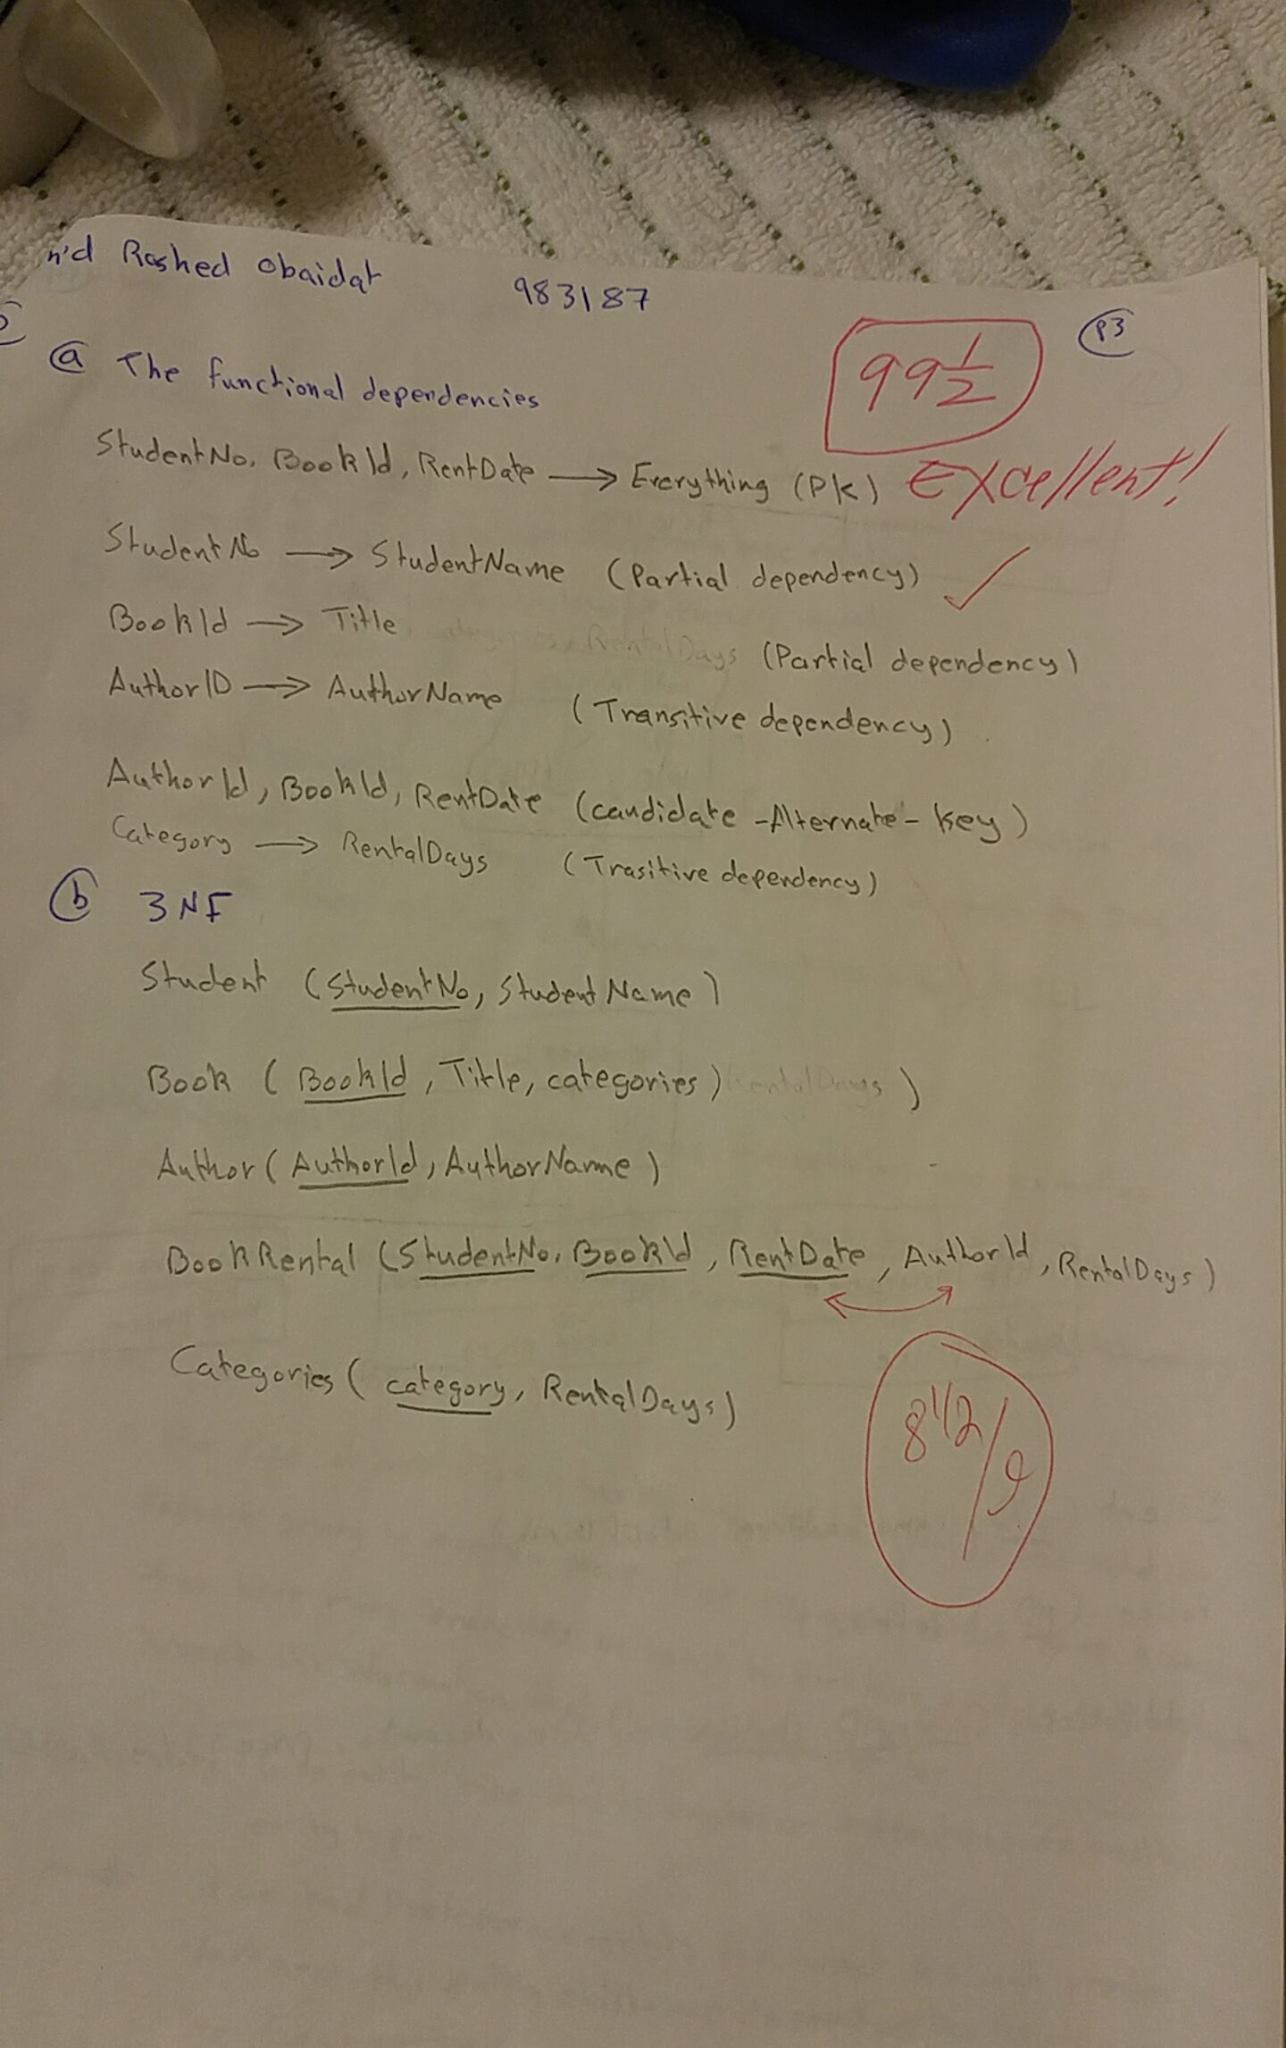 n'd Rashed Obaidat 983187 P3
99 1/2
a The functional dependencies
StudentNo, BookId, RentDate → Everything (PK) Excellent!
StudentNo → StudentName (Partial dependency) ✓
BookId → Title (Partial dependency)
AuthorID → AuthorName (Transitive dependency)
AuthorId, BookId, RentDate (candidate -Alternate- Key)
Category → RentalDays (Trasitive dependency)
b 3NF
Student (StudentNo, StudentName)
Book (BookId, Title, categories) RentalDays )
Author (AuthorId, AuthorName)
BookRental (StudentNo, BookId, RentDate, AuthorId, RentalDays)
Categories (category, RentalDays)
8 1/2/9